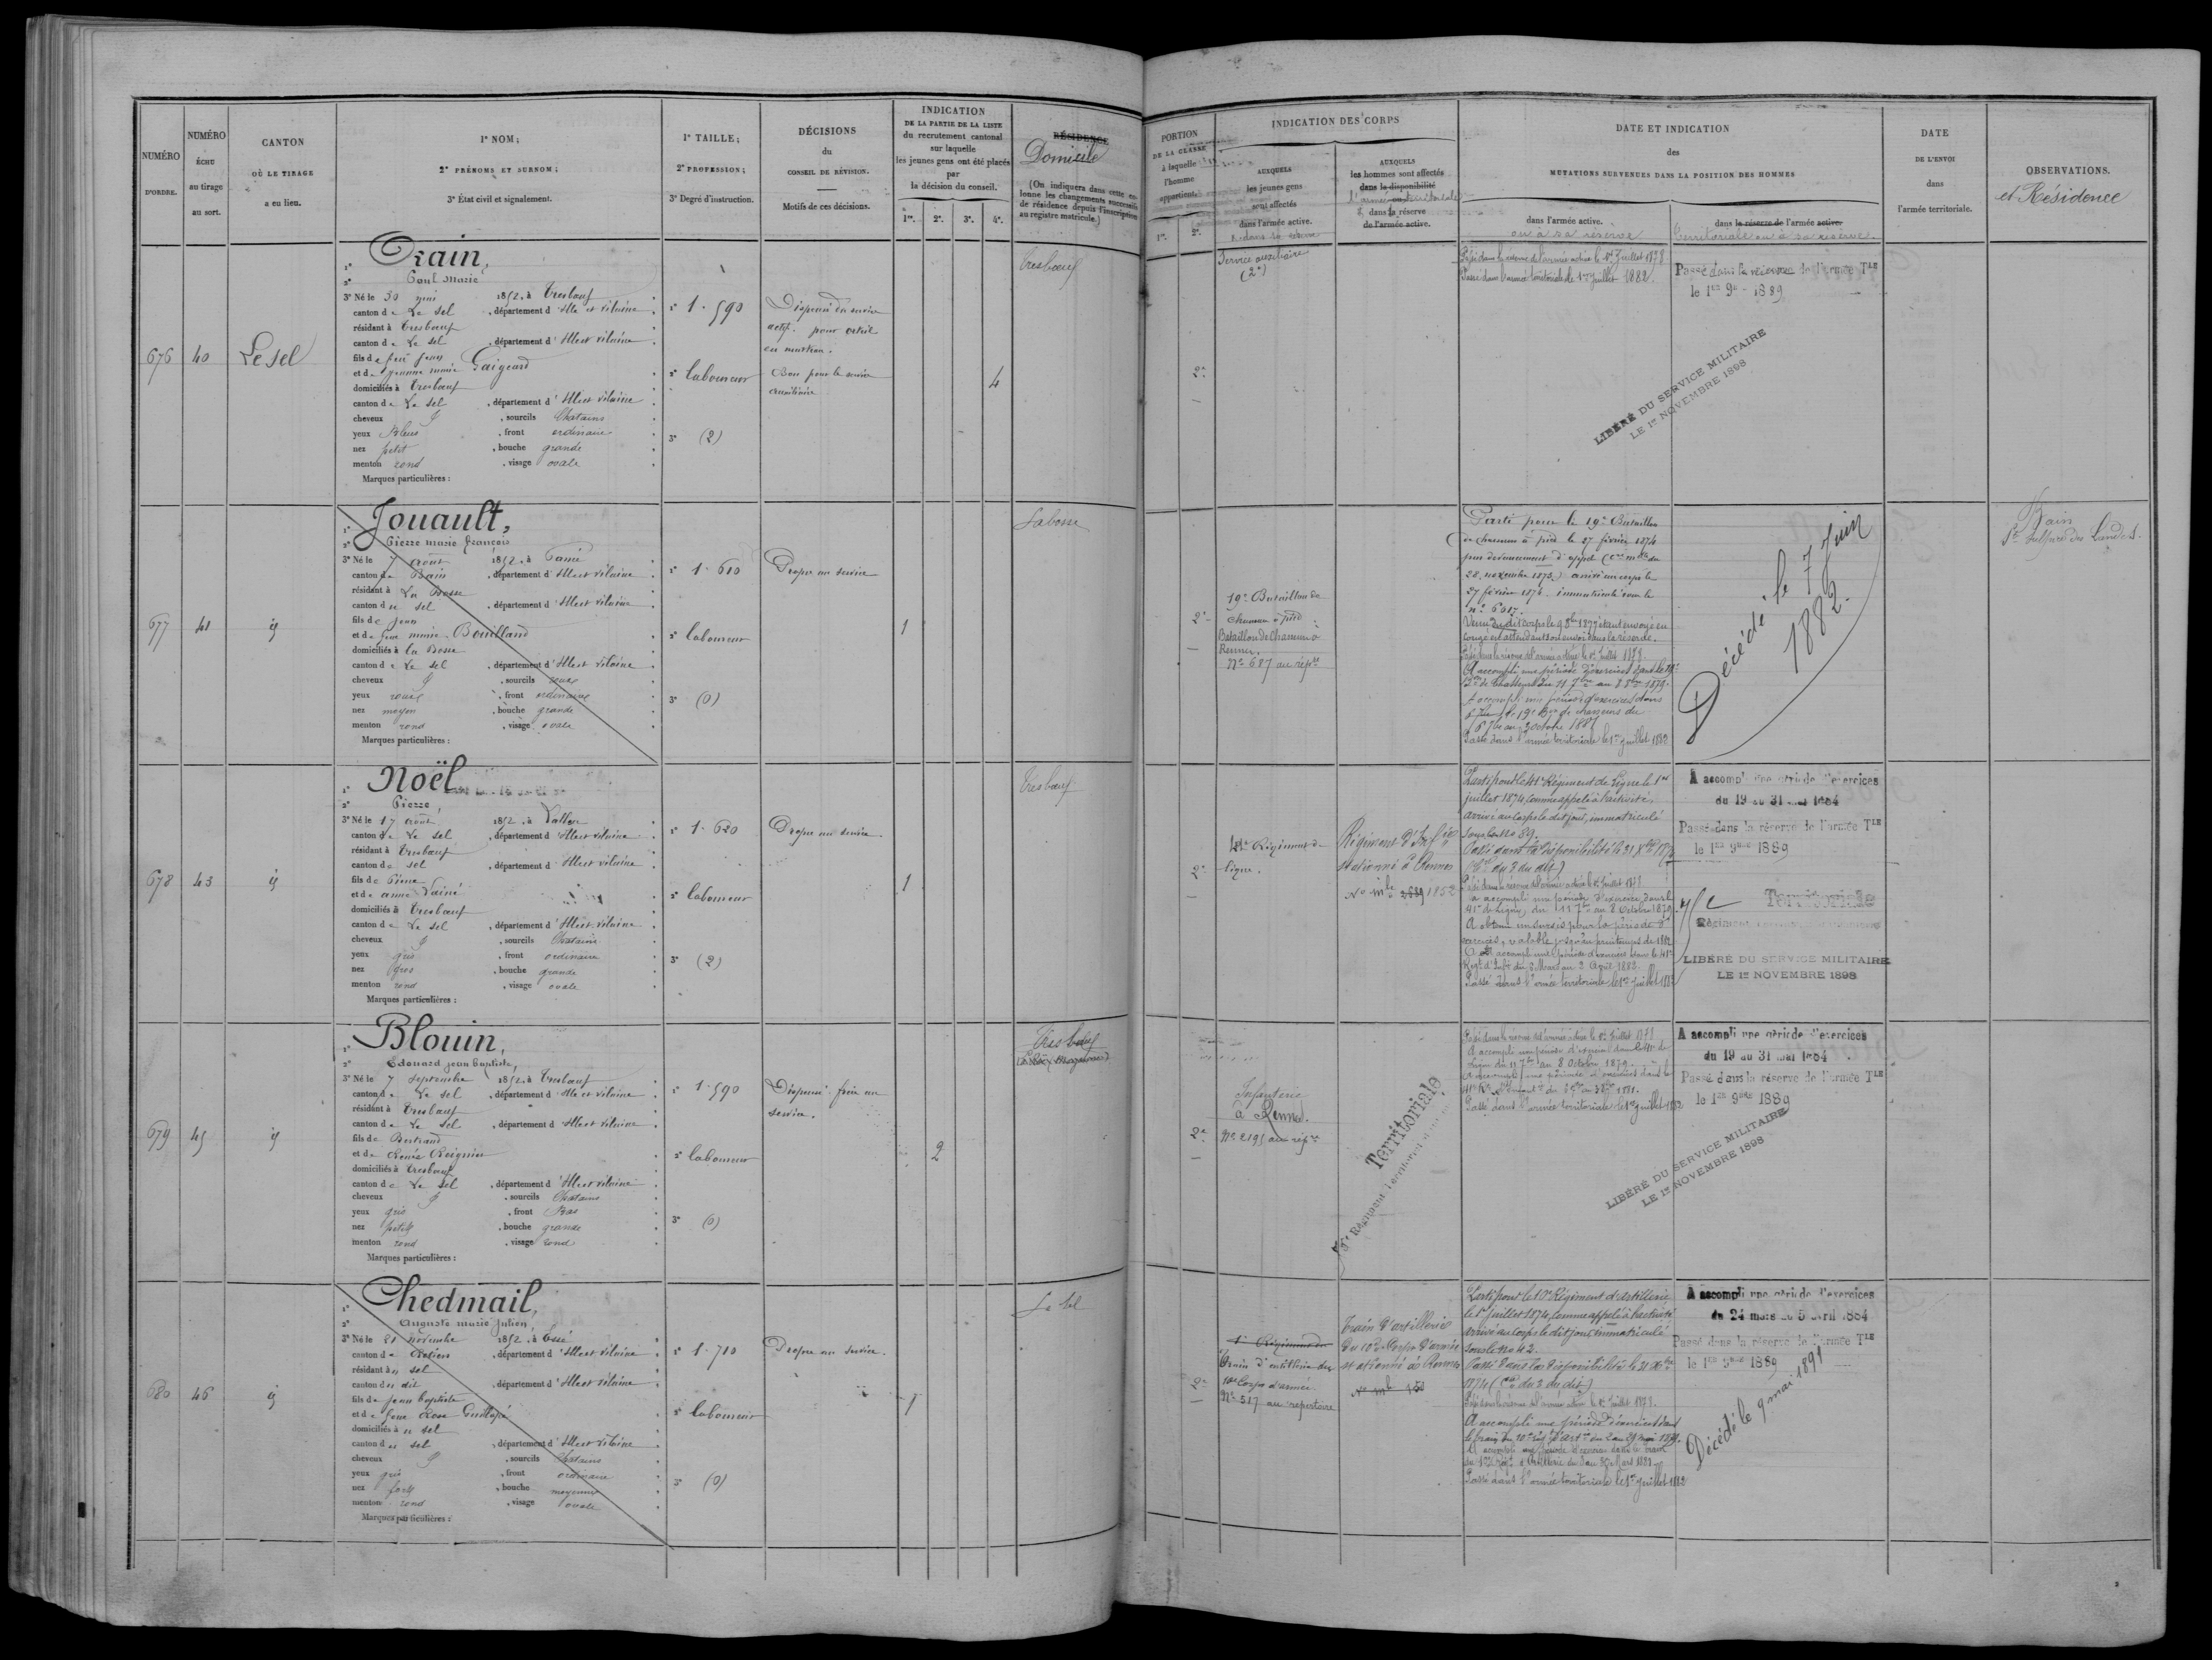 NUMÉRO
D'ORDRE.
NUMÉRO
ÉCHU
au tirage
au sort.
CANTON
OÙ LE TIRAGE
a eu lieu.
1° NOM;
2° PRÉNOMS ET SURNOM;
3° État civil et signalement.
1° TAILLE;
2° PROFESSION;
3° Degré d'instruction.
DÉCISIONS
du
CONSEIL DE RÉVISION.
Motifs de ces décisions.
INDICATION
DE LA PARTIE DE LA LISTE
du recrutement cantonal
sur laquelle
les jeunes gens ont été placés
par
la décision du conseil.
1re. 2e. 3e. 4e.
RÉSIDENCE
Domicile
(On indiquera dans cette co-
lonne les changements successifs
de résidence depuis l'inscription
au registre matricule.)
PORTION
DE LA CLASSE
à laquelle
l'homme
appartient.
1re. 2e.
INDICATION DES CORPS
AUXQUELS
les jeunes gens
sont affectés
dans l'armée active.
AUXQUELS
les hommes sont affectés
dans la disponibilité
dans la réserve
de l'armée active.
DATE ET INDICATION
des
MUTATIONS SURVENUES DANS LA POSITION DES HOMMES
dans l'armée active.
ou à sa réserve
dans la réserve de l'armée active.
territoriale ou à sa réserve.
DATE
DE L'ENVOI
dans
l'armée territoriale.
OBSERVATIONS.
et Résidence
676 40 Le sel
1° Orain,
2° Paul Marie
3° Né le 30 mai 1852, à Tresboeuf
canton de Le Sel, département d'Ille et Vilaine
résidant à Tresboeuf
canton de Le sel, département d'Ille et Vilaine
fils de feu Jean
et de Jeanne marie Gaigeard
domiciliés à Tresboeuf
canton de Le Sel, département d'Ille et Vilaine
cheveux, sourcils Chatains
yeux Bleus, front ordinaire
nez petit, bouche grande
menton rond, visage ovale
Marques particulières :
1° 1.590
2° laboureur
3° (2)
Dispensé du service
actif. pour
Bon pour le service
auxiliaire
4
Tresboeuf
2e
Service auxiliaire
(2e)
Passé dans la réserve de l'armée active le 1er Juillet 1878
Passé dans l'armée territoriale le 1er juillet 1882.
Passé dans la réserve de l'armée TLE
le 1er 9bre 1889
LIBÉRÉ DU SERVICE MILITAIRE
LE 1er NOVEMBRE 1898
677 41 id
1° Jouault,
2° Pierre marie françois
3° Né le 7 août 1852, à Pancé
canton de Bain, département d'Ille et Vilaine
résidant à La Bosse
canton du sel, département d'Ille et Vilaine
fils de Jean
et de feue marie Bouilland
domiciliés à la Bosse
canton de Le Sel, département d'Ille et Vilaine
cheveux, sourcils roux
yeux roux, front ordinaire
nez moyen, bouche grande
menton rond, visage ovale
Marques particulières :
1° 1.610
2° laboureur
3° (0)
Propre au service
1
Labosse
2e
19e Bataillon de
Chasseurs à pied
Bataillon de Chasseurs à
Rennes.
No 687 au répre
Parti pour le 19e Bataillon
de chasseurs à pied le 27 février 1874
par devancement d'appel
28 novembre 1873.) arrivé au corps le
27 février 1874. immatriculé sous le
no 6017.
congé en attendant son envoi dans la réserve.
Passé dans la réserve de l'armée active le 1er Juillet 1878
A accompli une période d'exercices dans le 19e
A accompli une période d'exercices dans
Passé dans l'armée territoriale le 1er juillet 1882
Décédé le 7 Juin
1882.
Bain
678 43 id
1° Noël
2° Pierre,
3° Né le 17 août 1852, à
canton de Le Sel, département d'Ille et Vilaine
résidant à Tresboeuf
canton de sel, département d'Ille et Vilaine
fils de Pierre
et de anne
domiciliés à Tresboeuf
canton de Le Sel, département d'Ille et Vilaine
cheveux, sourcils Chatains
yeux gris, front ordinaire
nez gros, bouche grande
menton rond, visage ovale
Marques particulières :
1° 1.620
2° laboureur
3° (2)
Propre au service.
1
Tresboeuf
2e
41e Régiment de
ligne.
Régiment d'Infie
stationné à Rennes
No mle 2689 1852
Parti pour le 41e Régiment de Ligne le 1er
juillet 1874, comme appelé à l'activité,
arrivé au corps le dit jour, immatriculé
sous le no 89.
Passé dans la disponibilité le 31 Xbre
Passé dans la réserve de l'armée active le 1er Juillet 1878
a accompli une période d'exercice dans le
41e de Ligne, du 11 7bre au 8 Octobre 1879.
A obtenu un sursis pour la période d'
exercices, valable jusqu'au printemps de 1882
A accompli une période d'exercices dans le 41e
Passé dans l'armée territoriale le 1er juillet 1882
A accompli une période d'exercices
du 19 au 31 mai 1884
Passé dans la réserve de l'armée TLE
le 1er 9bre 1889
Territoriale
LIBÉRÉ DU SERVICE MILITAIRE
LE 1er NOVEMBRE 1898
679 45 id
1° Blouin,
2° Edouard jean baptiste,
3° Né le 7 septembre 1852, à Tresboeuf
canton de Le Sel, département d'Ille et Vilaine
résidant à Tresboeuf
canton de Le Sel, département d'Ille et Vilaine
fils de Bertrand
et de Renée
domiciliés à Tresboeuf
canton de Le Sel, département d'Ille et Vilaine
cheveux, sourcils Chatains
yeux gris, front Bas
nez petit, bouche grande
menton rond, visage rond
Marques particulières :
1° 1.590
2° laboureur
3° (0)
Dispensé. frère au
service.
2
Tresboeuf
2e
Infanterie
à Rennes.
No 2195 au répre
Territoriale
Régiment Territorial
Passé dans la réserve de l'armée active le 1er Juillet 1878
A accompli une période d'exercices dans le 41e de
Ligne du 11 7bre au 8 Octobre 1879.
A accompli une période d'exercices dans le
Passé dans l'armée territoriale le 1er juillet 1882
A accompli une période d'exercices
du 19 au 31 mai 1884
Passé dans la réserve de l'armée TLE
le 1er 9bre 1889
LIBÉRÉ DU SERVICE MILITAIRE
LE 1er NOVEMBRE 1898
680 46 id
1° Chedmail,
2° Auguste marie Julien
3° Né le 21 novembre 1852, à Essé
canton de Retiers, département d'Ille et Vilaine
résidant à u sel
canton du dit, département d'Ille et Vilaine
fils de Jean baptiste
et de feue Rose
domiciliés à u sel
canton du sel, département d'Ille et Vilaine
cheveux, sourcils Chatains
yeux gris, front ordinaire
nez fort, bouche moyenne
menton rond, visage ovale
Marques particulières :
1° 1.710
2° laboureur
3° (0)
Propre au service.
1
Le Sel
2e
Train d'artillerie du
10e Corps d'armée
No 517 au répertoire
Train d'artillerie
du 10e Corps d'armée
stationné à Rennes
No mle 150
Parti pour le 10e Régiment d'Artillerie
le 1er juillet 1874, comme appelé à l'activité
arrivé au corps le dit jour, immatriculé
sous le no 42.
Passé dans la disponibilité le 31 Xbre
Passé dans la réserve de l'armée active le 1er Juillet 1878.
A accompli une période d'exercices dans
A accompli une période d'exercices dans le train
Passé dans l'armée territoriale le 1er juillet 1882
A accompli une période d'exercices
du 24 mars au 5 avril 1884
Passé dans la réserve de l'armée TLE
le 1er 9bre 1889
Décédé le 9 mai 1891